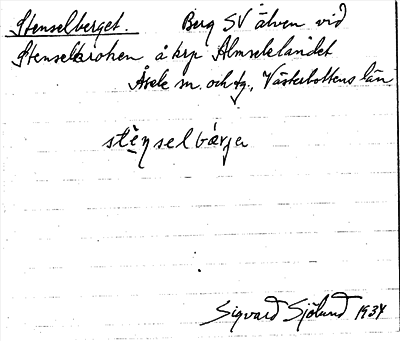 Stenselberget. Berg SV älven vid
Stenselekroken å krp Almselelandet
Åsele sn. och tg., Västerbottens län
stènselbärje
Sigvard Sjölund 1934